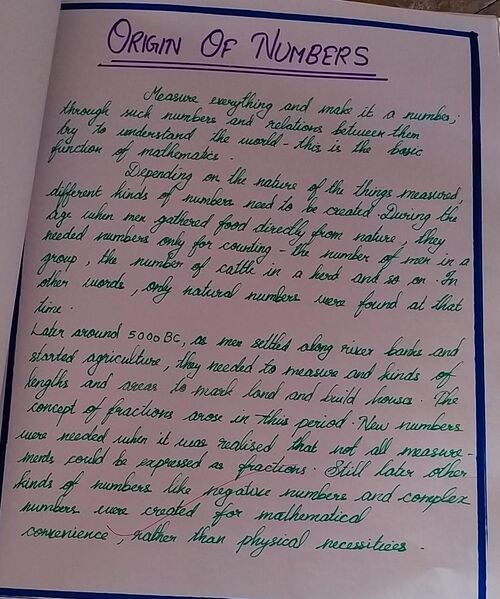 ORIGIN OF NUMBERS
Measure everything and make it a number;
through such numbers and relations between them
try to understand the world - this is the basic
function of mathematics.
Depending on the nature of the things measured,
different kinds of numbers need to be created. During the
age when men gathered food directly from nature, they
needed numbers only for counting - the number of men in a
group, the number of cattle in a herd and so on. In
other words, only natural numbers were found at that
time.
Later around 5000 BC, as men settled along river banks and
started agriculture, they needed to measure and kinds of
lengths and areas to mark land and build houses. The
concept of fractions arose in this period. New numbers
were needed when it was realised that not all measure-
ments could be expressed as fractions. Still later other
kinds of numbers like negative numbers and complex
numbers were created for mathematical
convenience, rather than physical necessitiees.